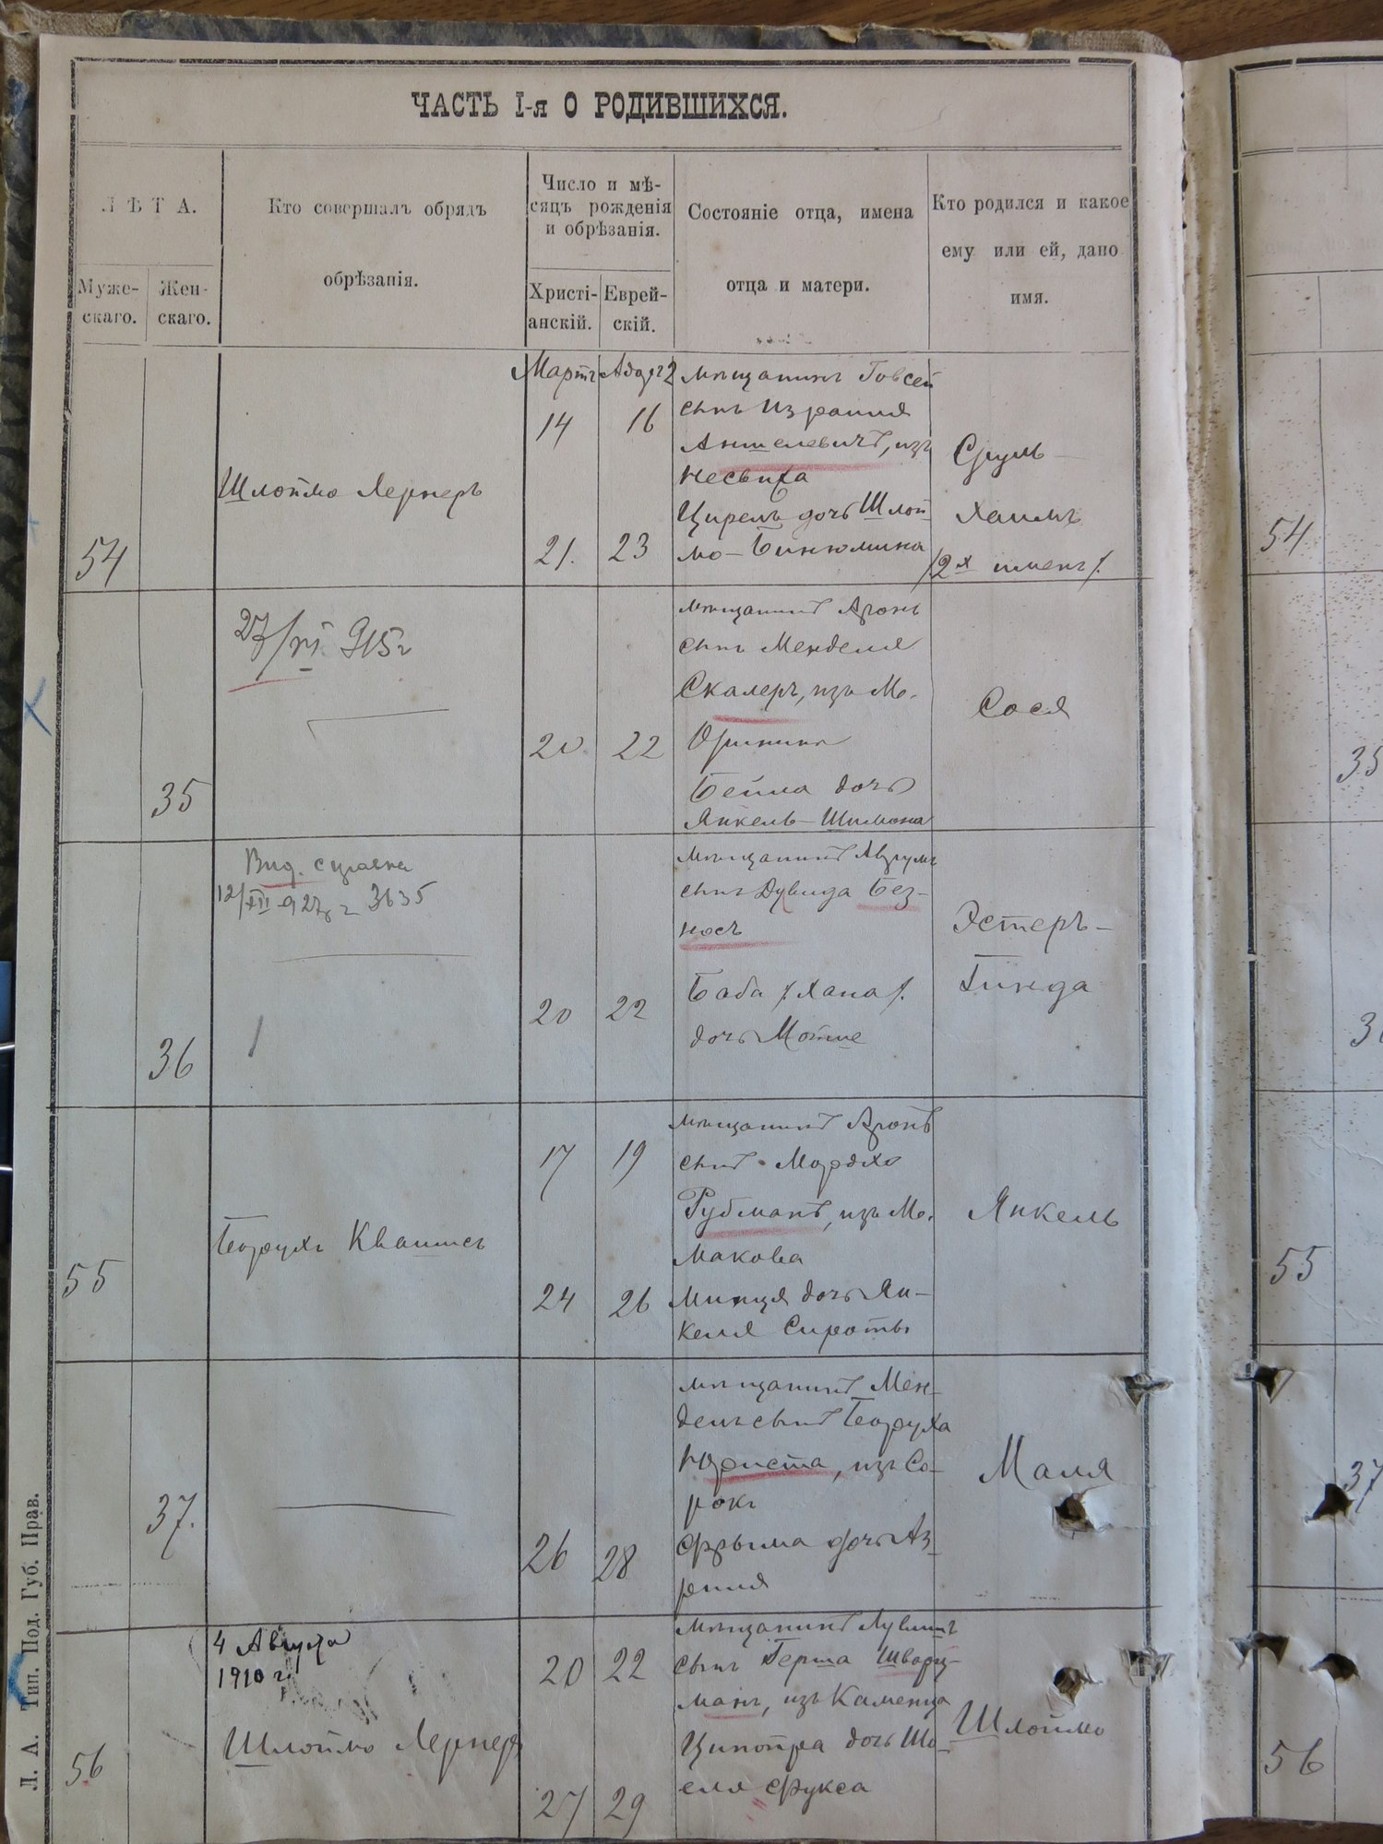 ЧАСТЬ I-я О РОДИВШИХСЯ.
ЛѢТА.
Муже-
скаго.
Жен-
скаго.
Кто совершалъ обрядъ
обрѣзанія.
Число и мѣ-
сяцъ рожденія
и обрѣзанія.
Христі-
анскій.
Еврей-
скій.
Состояніе отца, имена
отца и матери.
Кто родился и какое
ему или ей, дано
имя.
54
Шлоймо Лернеръ
Мартъ
14
21.
Адаръ 2
16
23
мѣщанинъ Говсей
сынъ Израиля
Аншелевичъ, изъ
Несвижа
Цирель дочь Шлой-
мо-Бинюмина
Сруль-
Хаимъ
/2х именъ/.
35
27/VI 915 г
20
22
мѣщанинъ Аронъ
сынъ Менделя
Скалеръ, изъ м.
Оринина
Бейла дочь
Янкель-Шимона
Сося
35
36
Выд. справка
12/XII 927 г 3635
20
22
мѣщанинъ Аврумъ
сынъ Дувида Без-
носъ
Баба /Хана/.
дочь Мотше
Эстеръ-
Гинда
55
Боорухъ Квашисъ
17
24
19
26
мѣщанинъ Аронъ
сынъ Мордхо
Рубманъ, изъ м.
Макова
Минця дочь Ян-
келя Сироты
Янкель
55
37.
26
28
мѣщанинъ Мен-
дель сынъ Бооруха
Юриста, изъ Со-
рокъ
Фрыма дочь Аз-
риля
Маля
37
56
4 Августа
1910 г.
Шлоймо Лернеръ
20
27
22
29
мѣщанинъ
сынъ Герша Шварц-
манъ, изъ Каменца
Ципойра дочь Шо-
еля Фукса
Шлоймо
56
54
Л. А. Тип. Под. Губ. Прав.